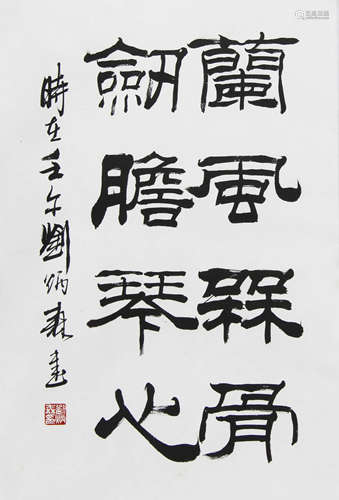 蘭風梅骨
劒膽琴心
時在壬午劉炳森書